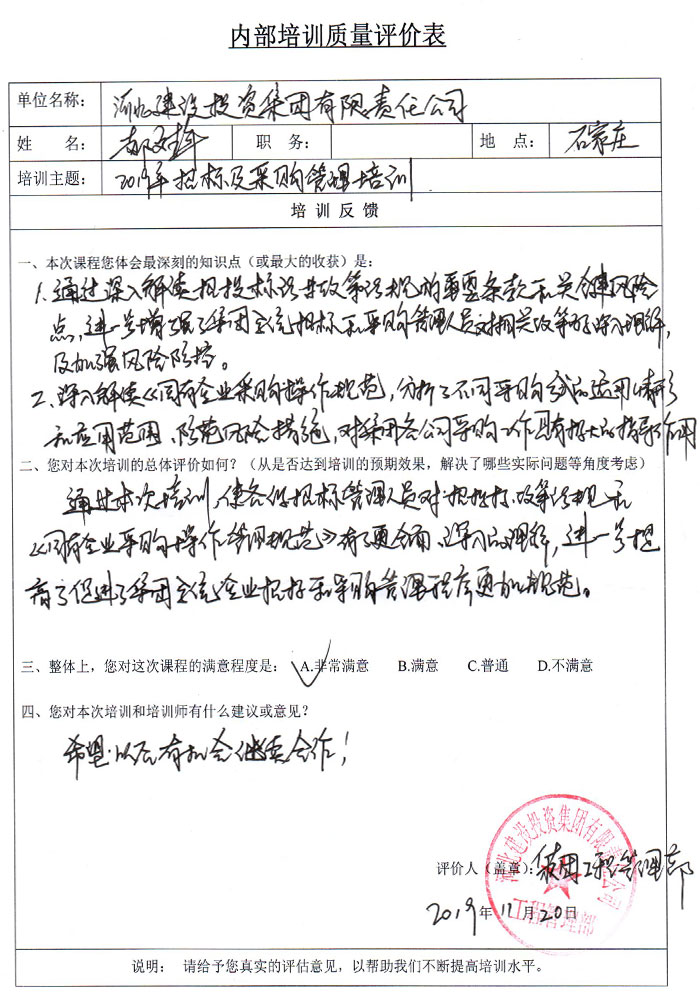 内部培训质量评价表
单位名称： 河北建设投资集团有限责任公司
姓 名： 职 务： 地 点： 石家庄
培训主题： 2019年招标及采购管理培训
培 训 反 馈
一、本次课程您体会最深刻的知识点（或最大的收获）是：
1. 通过深入解读招投标法其政策法规的重要条款和关键风险
点，进一步增强了集团系统招标和采购管理人员对相关政策的深入理解，
及加强风险防控。
2、深入解读《国有企业采购操作规范，分析了不同采购方式的适用情形
和应用范围、防范风险措施，对集团各公司采购工作具有极大的指导作用
二、您对本次培训的总体评价如何？（从是否达到培训的预期效果，解决了哪些实际问题等角度考虑）
通过本次培训，使各位招标管理人员对招投标政策法规和
《国有企业采购操作管理规范》有了更全面、深入的理解，进一步提
高了促进了集团系统企业招标和采购管理程序更加规范。
三、整体上，您对这次课程的满意程度是： A.非常满意 B.满意 C.普通 D.不满意
四、您对本次培训和培训师有什么建议或意见？
希望以后有机会继续合作！
河北建设投资集团有限责任公司
工程管理部
评价人（盖章）：集团工程管理部
2019年11月20日
说明： 请给予您真实的评估意见，以帮助我们不断提高培训水平。